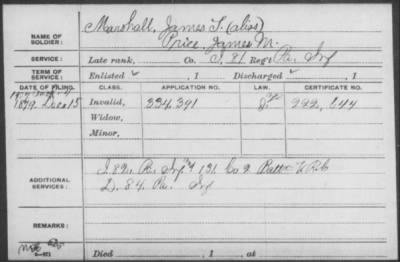 NAME OF SOLDIER: Marshall, James T. (alias)
Price, James M.
SERVICE: Late rank, Co. I, 81 Reg't Pa. Inf
TERM OF SERVICE: Enlisted , 1 Discharged , 1
DATE OF FILING. CLASS. APPLICATION NO. LAW. CERTIFICATE NO.
1879. Dec 15 Invalid, 334,391
Widow,
Minor,
ADDITIONAL SERVICES: I. 82. Pa. Inf 131. Co 2 Batt V.R.C
D. 84. Pa. Inf
REMARKS:
Died , 1 , at